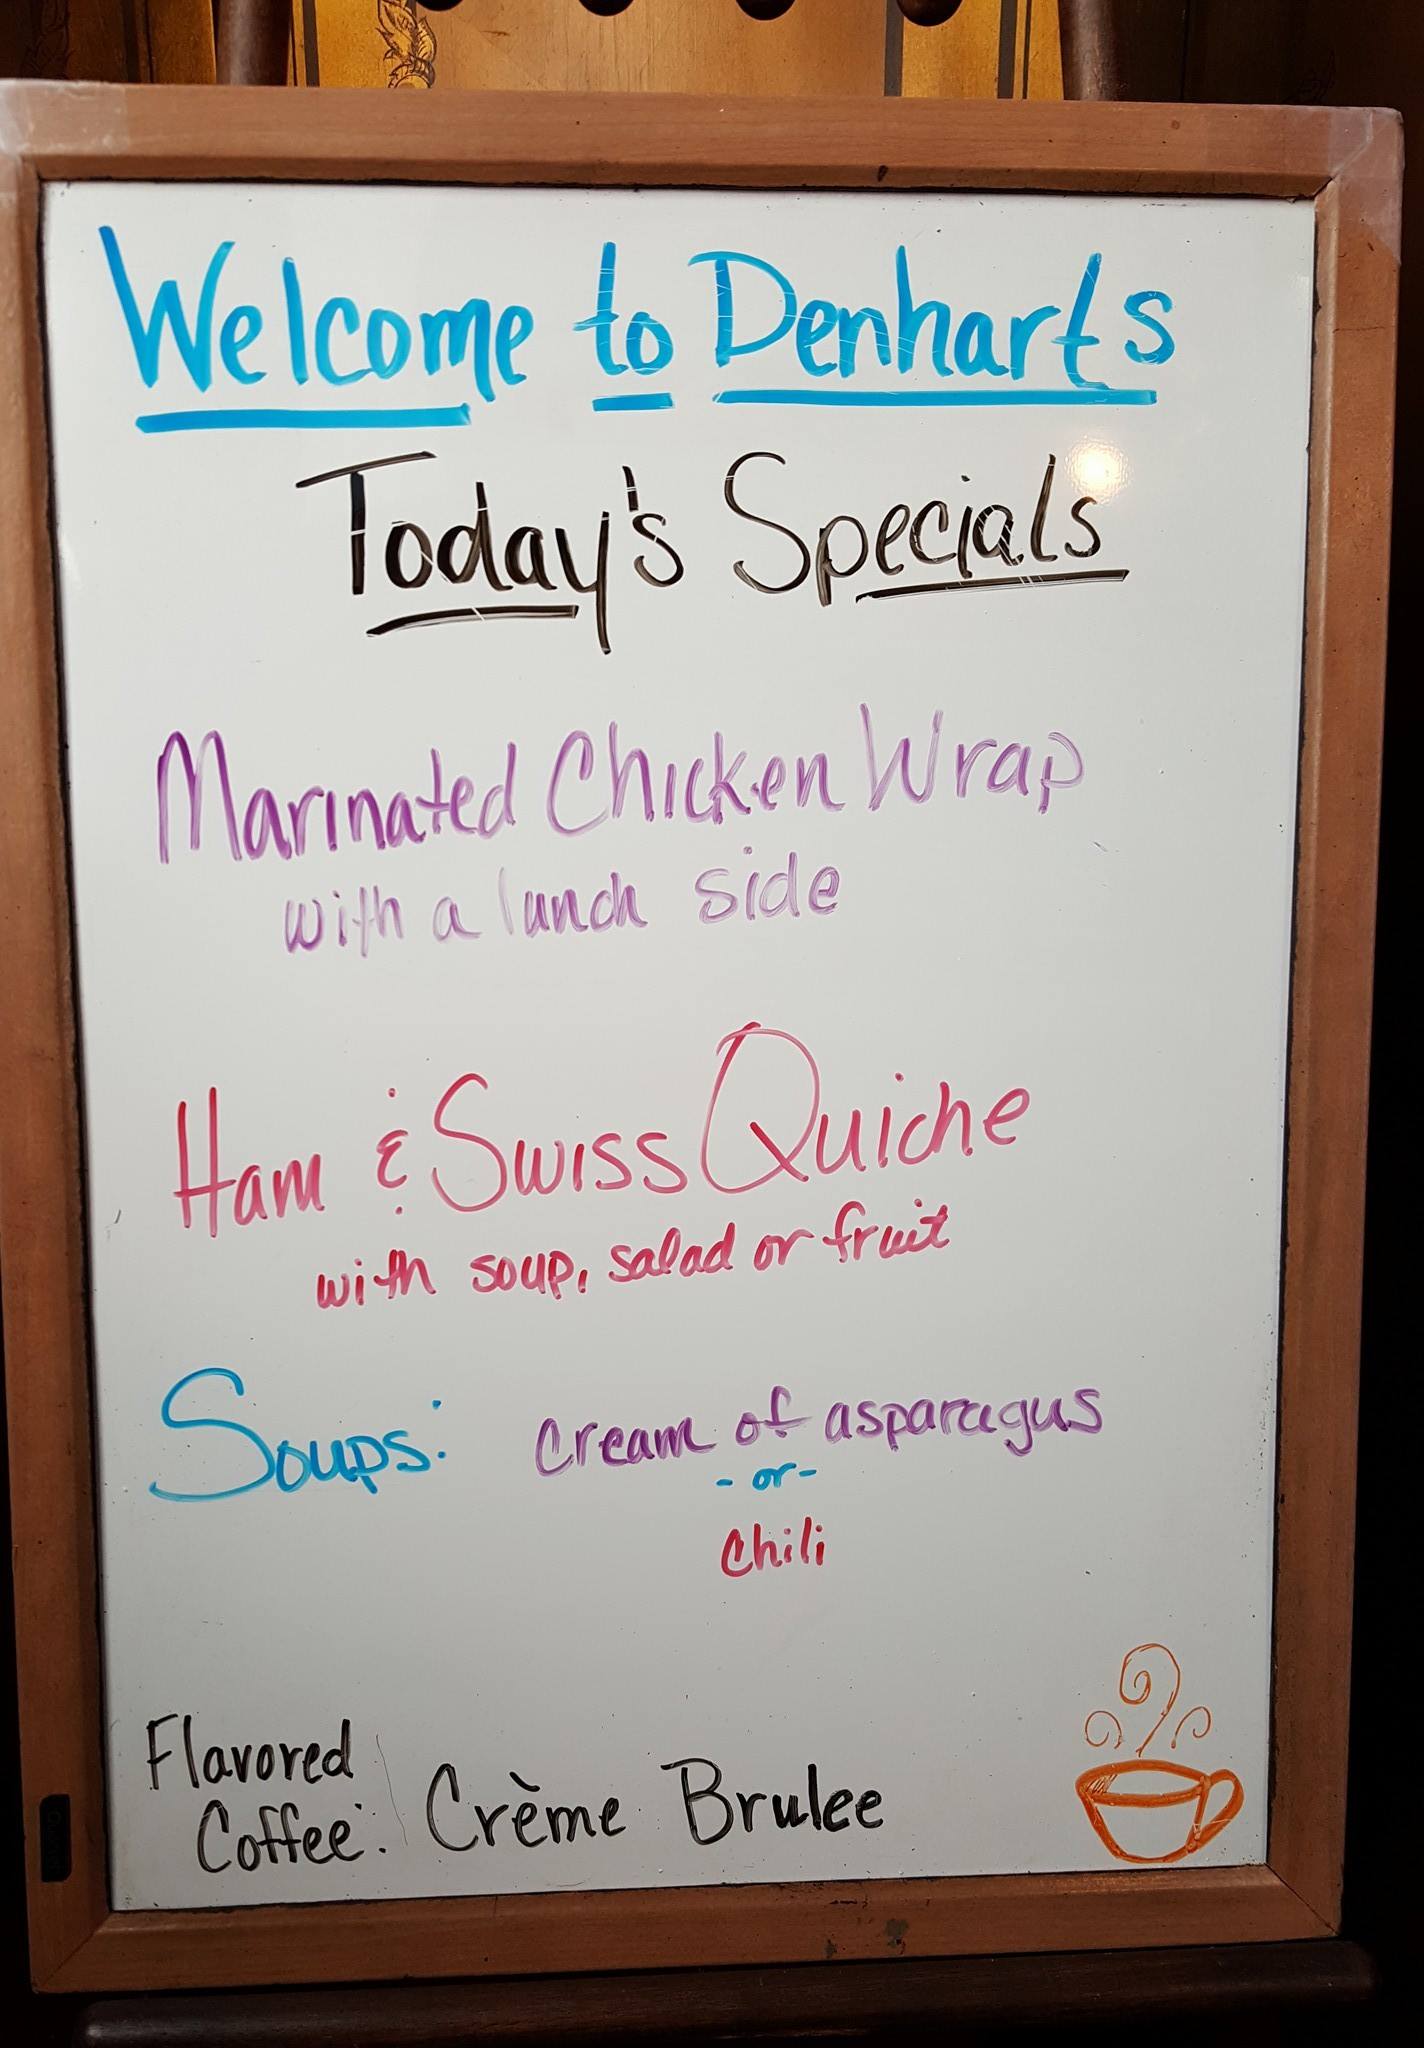 Welcome to Denharts
Today's Specials
Marinated Chicken Wrap
with a lunch side
Ham & Swiss Quiche
with soup, salad or fruit
Soups: cream of asparagus
- or -
chili
Flavored
Coffee: Crème Brulee